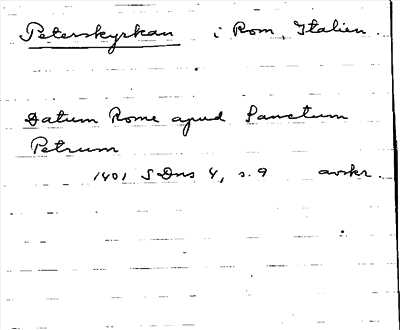 Peterskyrkan i Rom, Italien.
Datum Rome apud Sanctum
Petrum
1401 SDns 4, s. 9 avskr.